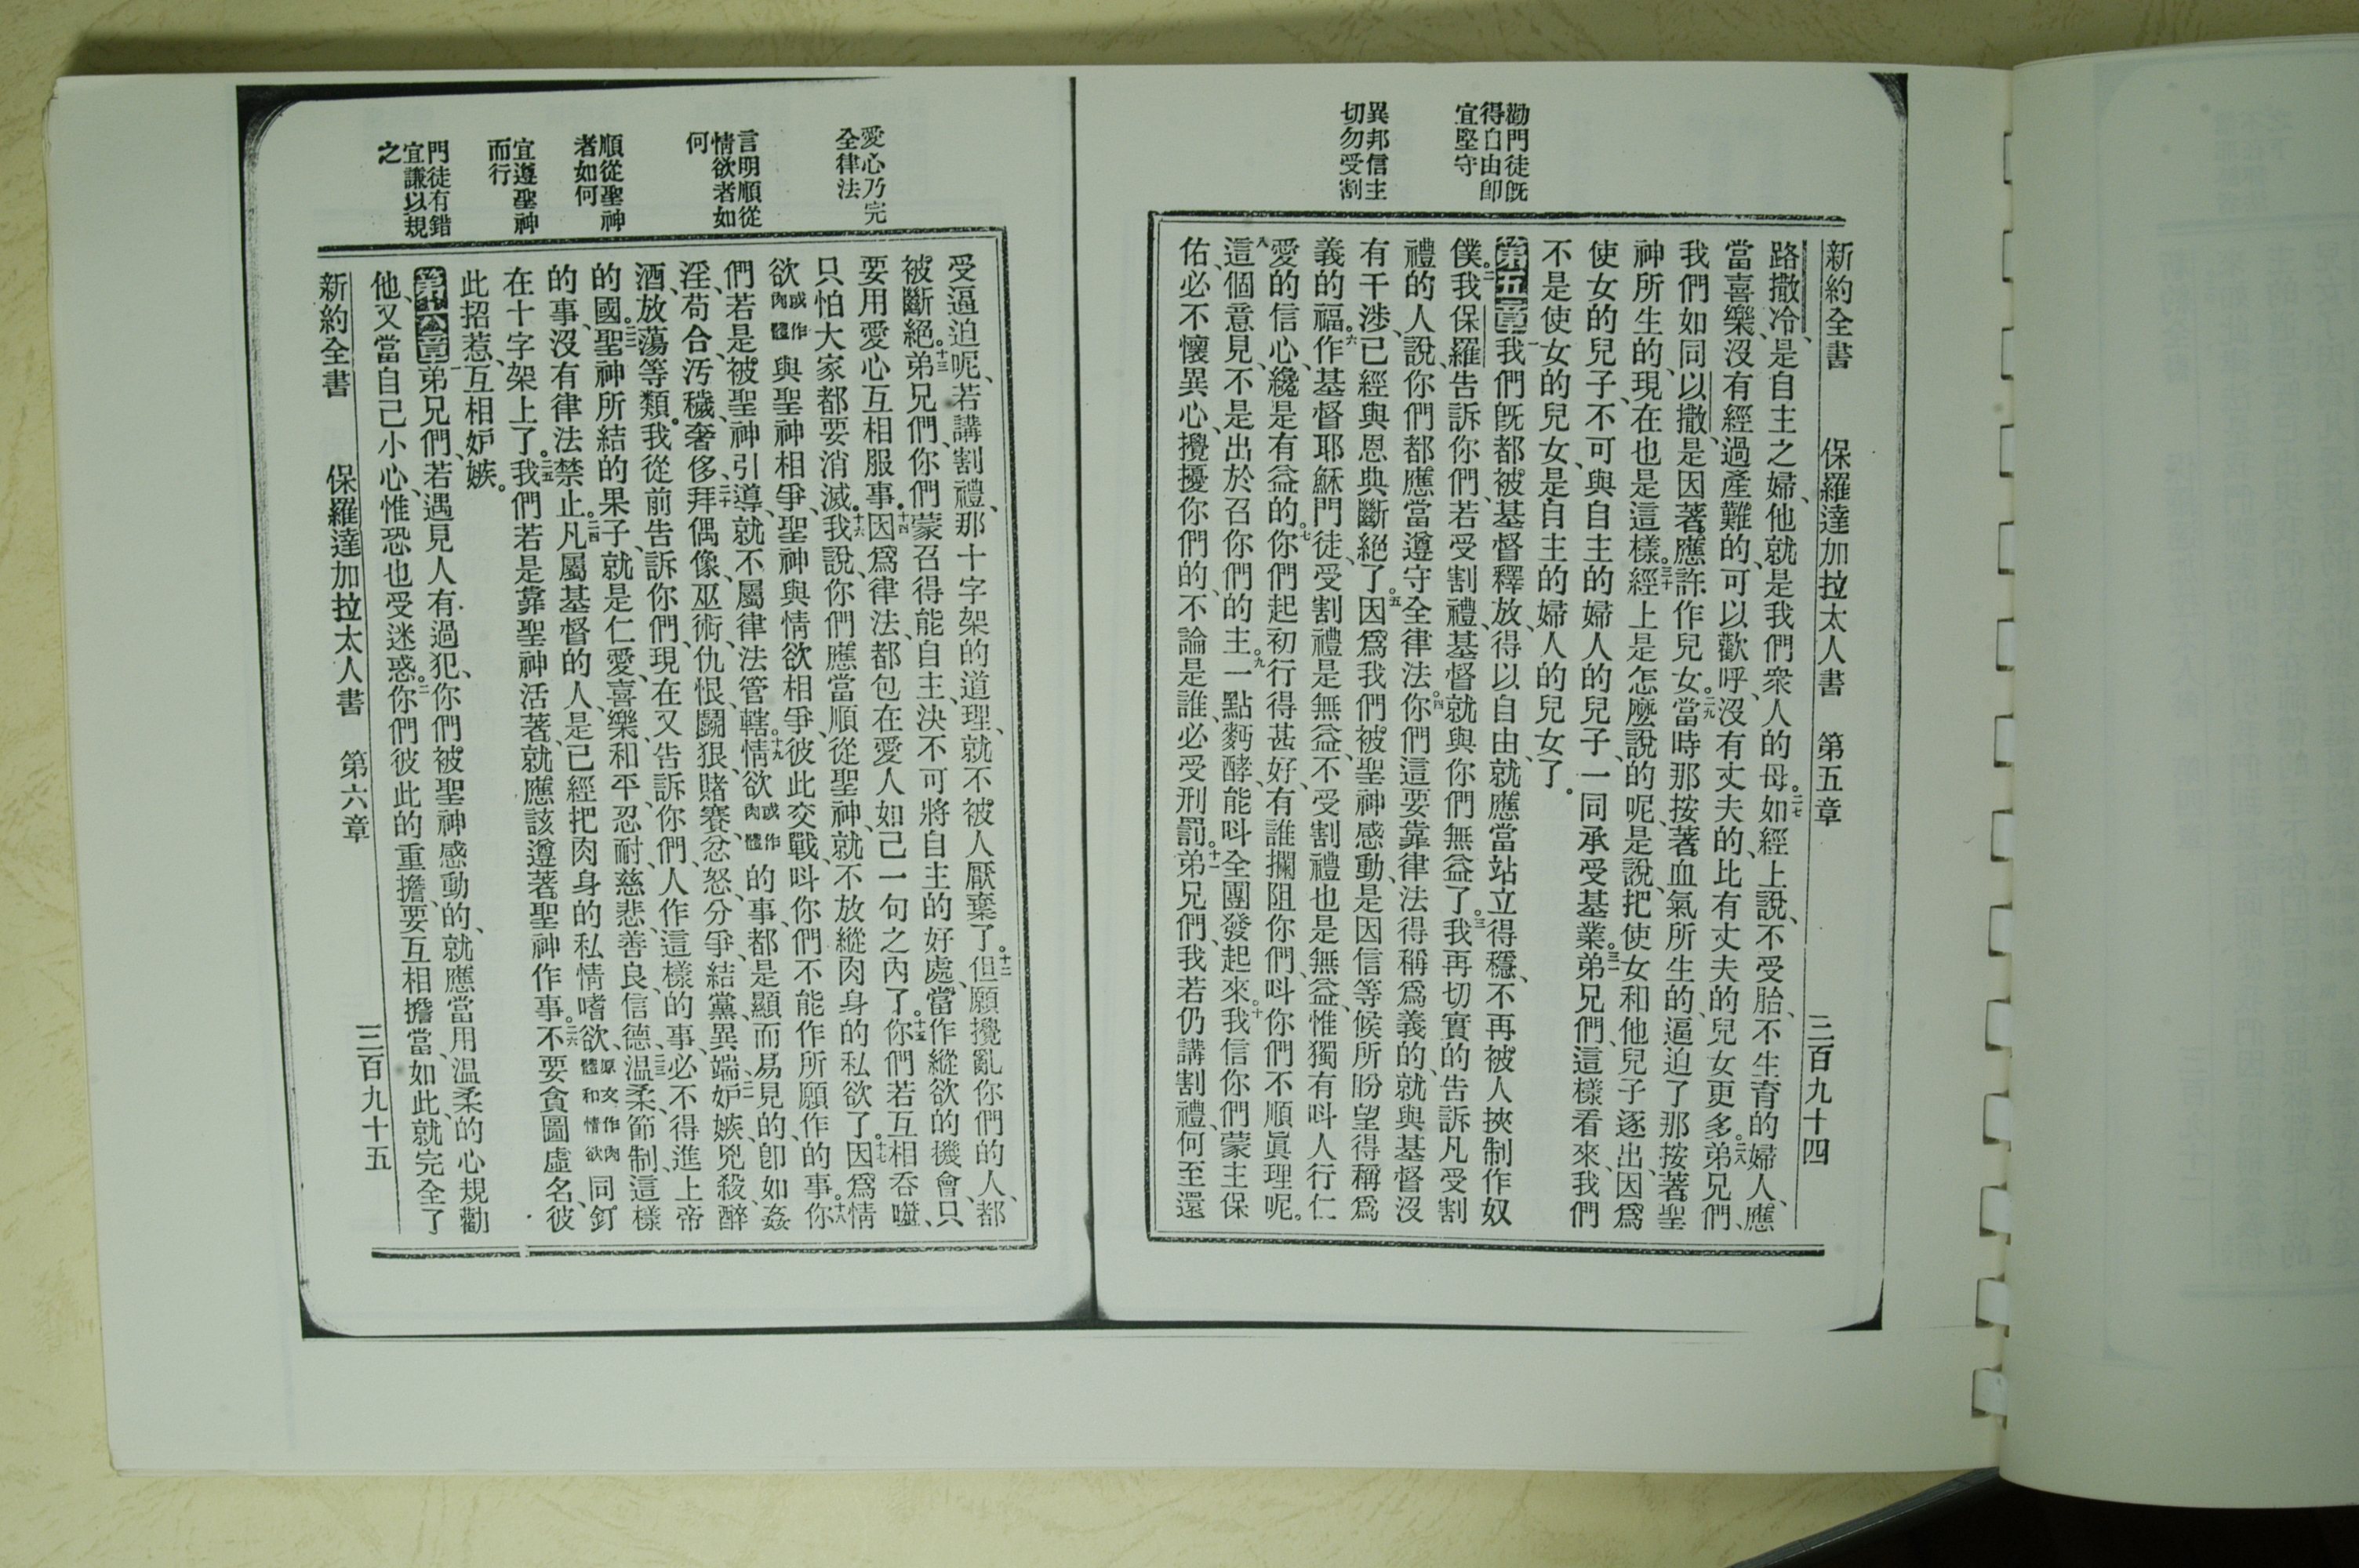 新約全書　保羅達加拉太人書　第五章　三百九十四
勸門徒既
得自由卽
宜堅守
異邦信主
切勿受割
路撒冷、是自主之婦、他就是我們衆人的母。二七如經上說、不受胎、不生育的婦人、應
當喜樂、沒有經過產難的、可以歡呼、沒有丈夫的、比有丈夫的兒女更多。二八弟兄們、
我們如同以撒、是因著應許作兒女。二九當時那按著血氣所生的、逼迫了那按著聖
神所生的、現在也是這樣。三十經上是怎麼說的呢、是說、把使女和他兒子逐出、因爲
使女的兒子、不可與自主的婦人的兒子、一同承受基業。三一弟兄們、這樣看來、我們
不是使女的兒女、是自主的婦人的兒女了。
第五章一我們既都被基督釋放、得以自由、就應當站立得穩、不再被人挾制作奴
僕。二我保羅告訴你們、若受割禮、基督就與你們無益了。三我再切實的告訴凡受割
禮的人說、你們都應當遵守全律法。四你們這要靠律法得稱爲義的、就與基督沒
有干涉、已經與恩典斷絕了。五因爲我們被聖神感動、是因信等候所盼望得稱爲
義的福。六作基督耶穌門徒、受割禮是無益、不受割禮也是無益、惟獨有呌人行仁
愛的信心、纔是有益的。七你們起初行得甚好、有誰攔阻你們、呌你們不順眞理呢。
八這個意見、不是出於召你們的主。九一點麪酵、能呌全團發起來。十我信你們蒙主保
佑、必不懷異心、攪擾你們的、不論是誰、必受刑罰。十一弟兄們、我若仍講割禮、何至還
愛心乃完
全律法
言明順從
情欲者如
何
順從聖神
者如何
宜遵聖神
而行
門徒有錯
宜謙以規
之
受逼迫呢、若講割禮、那十字架的道理、就不被人厭棄了。十二但願攪亂你們的人、都
被斷絕。十三弟兄們、你們蒙召得能自主、決不可將自主的好處、當作縱欲的機會、只
要用愛心互相服事。十四因爲律法、都包在愛人如己一句之內了。十五你們若互相吞噬、
只怕大家都要消滅。十六我說、你們應當順從聖神、就不放縱肉身的私欲了。十七因爲情
欲或作肉體與聖神相爭、聖神與情欲相爭、彼此交戰、呌你們不能作所願作的事。十八你
們若是被聖神引導、就不屬律法管轄。十九情欲或作肉體的事、都是顯而易見的、卽如姦
淫、苟合、汚穢、奢侈、二十拜偶像、巫術、仇恨、鬬狠、賭賽、忿怒、分爭、結黨、異端、二一妒嫉、兇殺、醉
酒、放蕩等類。我從前告訴你們、現在又告訴你們、人作這樣的事、必不得進上帝
的國。二二聖神所結的果子、就是仁愛、喜樂、和平、忍耐、慈悲、善良、信德、二三溫柔、節制、這樣
的事、沒有律法禁止。二四凡屬基督的人、是已經把肉身的私情嗜欲、原文作肉體和情欲同釘
在十字架上了。二五我們若是靠聖神活著、就應該遵著聖神作事。二六不要貪圖虛名、彼
此招惹、互相妒嫉。
第六章一弟兄們、若遇見人有過犯、你們被聖神感動的、就應當用溫柔的心規勸
他、又當自己小心、惟恐也受迷惑。二你們彼此的重擔、要互相擔當、如此、就完全了
新約全書　保羅達加拉太人書　第六章　三百九十五